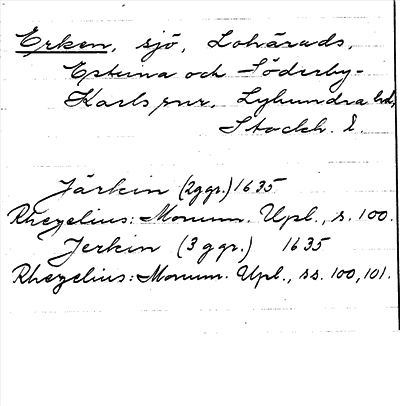 Erken, sjö, Lohärads,
Estuna och Söderby-
Karls snr, Lyhundra hd,
Stockh. l.
Järkin (2 ggr.) 1635
Rhezelius: Monum. Upl., s. 100.
Jerkin (3 ggr.) 1635
Rhezelius: Monum. Upl., ss. 100, 101.